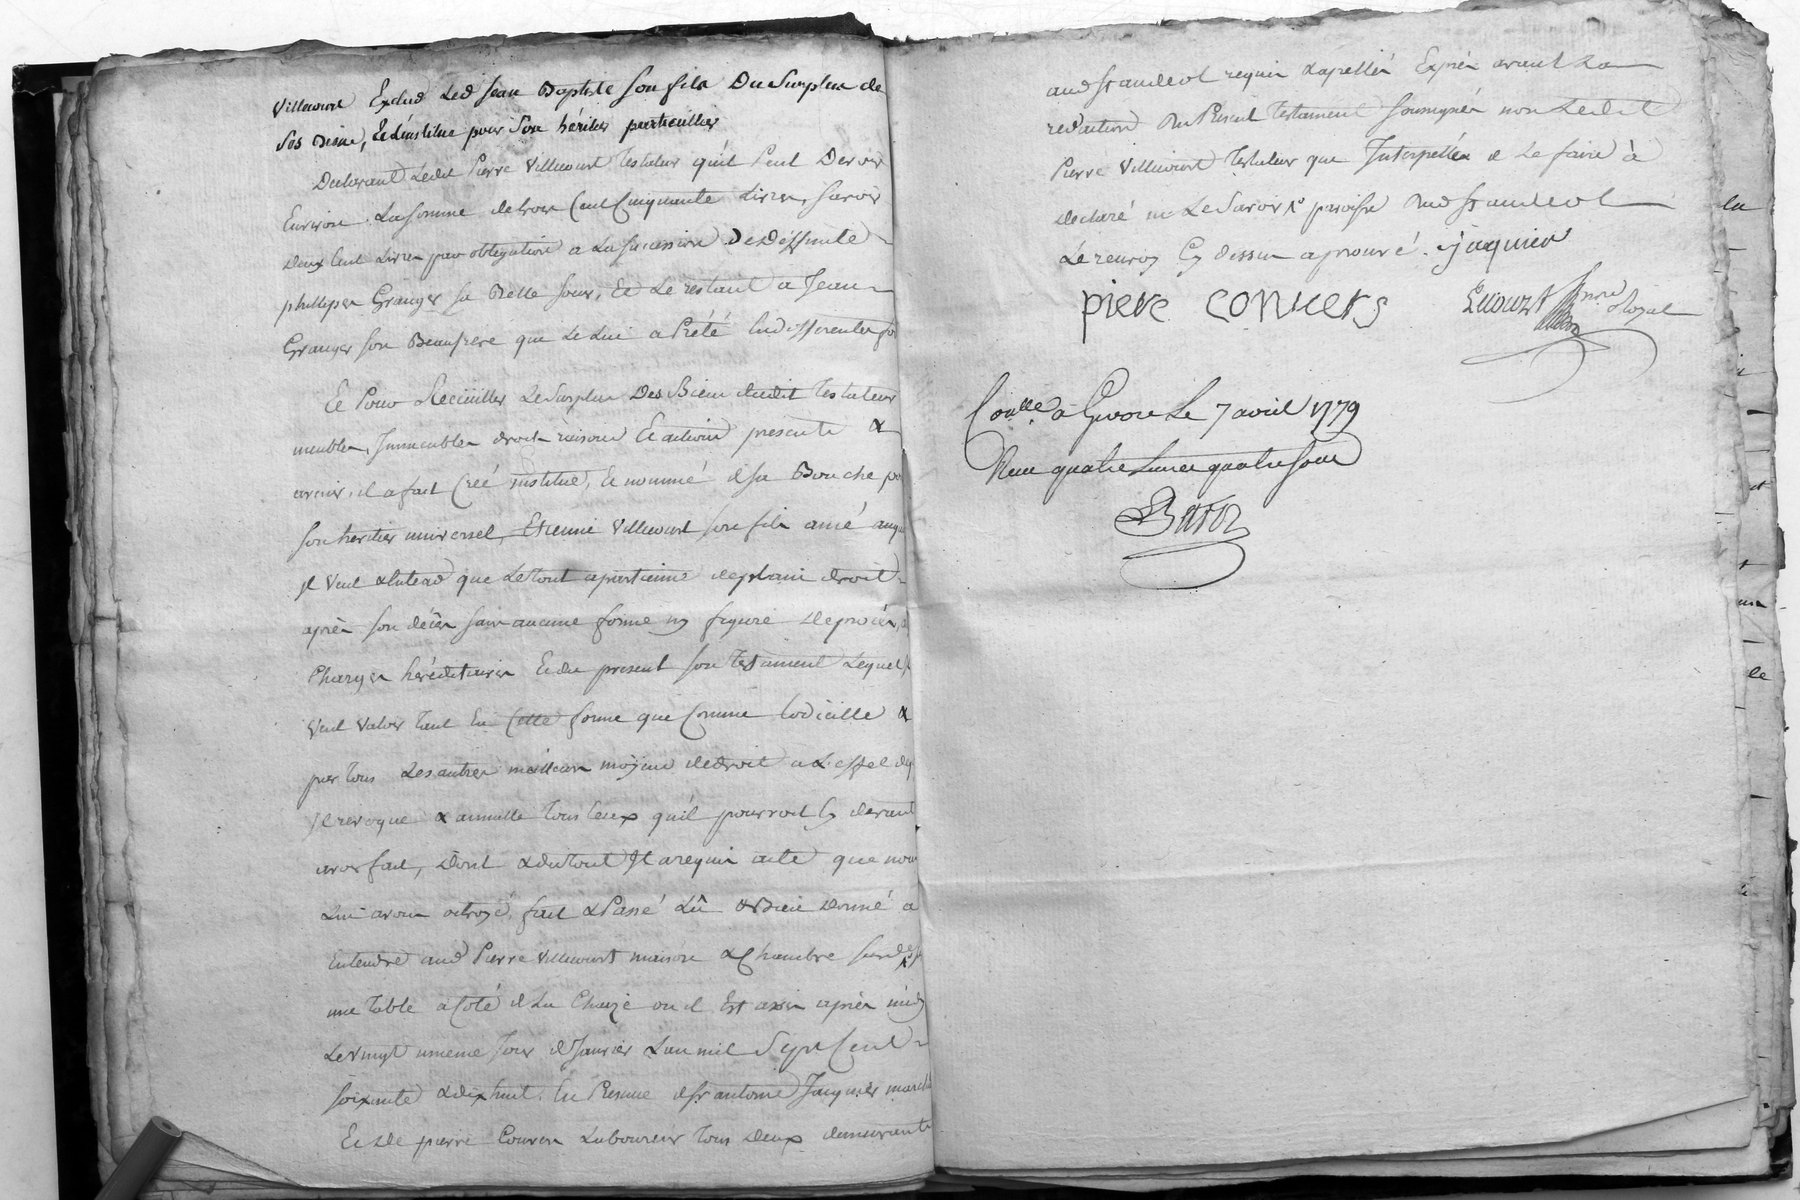 Villecourt Exclud Led Jean Baptiste son fils Du Surplus de
Ses Biens, Et L'institue pour son héritier particullier
Declarant Ledit Pierre Villecourt Testateur qu'il Peut Devoir
Environ La somme de trois Cent Cinquante Livres, savoir
Deux Cent Livres par obligation a La succession De Deffunte
phillipes Granger sa Belle soeur, Et Le restant a Jean
Granger son Beaufrere qui Le Lui a Prété En differentes fois
Et Pour Recüiller Le surplus Des Biens dudit Testateur
meubles, Immeubles droits raisons Et actions presents &
avenir, il a fait Créé institué, & nommé de sa Bouche pour
son heritier universel, Etienne Villecourt son fils ainé auquel
il Veut & Entend que Le tout apartienne de plain droit
après son décès sans aucune forme ny figure De procès,
Charges héréditaires Et du present son Testament Lequel
Veut Valoir Tant En Cette forme que Comme Codicille &
par tous Les autres meilleurs moyens de droit a L'effet de
Il revoque & annulle Tous Ceux qu'il pourroit Cy devant
avoir fait, Dont & du tout Il a requis acte que nous
Lui avons octroyé, fait & Passé Lû & Bien Donné a
Entendre aud Pierre Villecourt maison & Chambre sur
une Table a Coté de La Chaize ou il Est assis après midy
Le Vingt unieme Jour de Janvier L'an mil Sept Cent
soixante & dix huit. En Presence de sr antoine Jaquier
Et De pierre Couvers Laboureur Tous Deux demeurants
aud st andeol requis & apellés Exprès avant La
redaction Du Present Testament soussignés non Ledit
Pierre Villecourt Testateur que Interpellé de Le faire à
declaré ne Le Savoir paroisse dud st andeol
Le renvoy Cy dessus aprouvé. jaquier
piere conveers
Royal
Con.lle à Givors Le 7 avril 1779
Reçu quatre Livres quatre sous